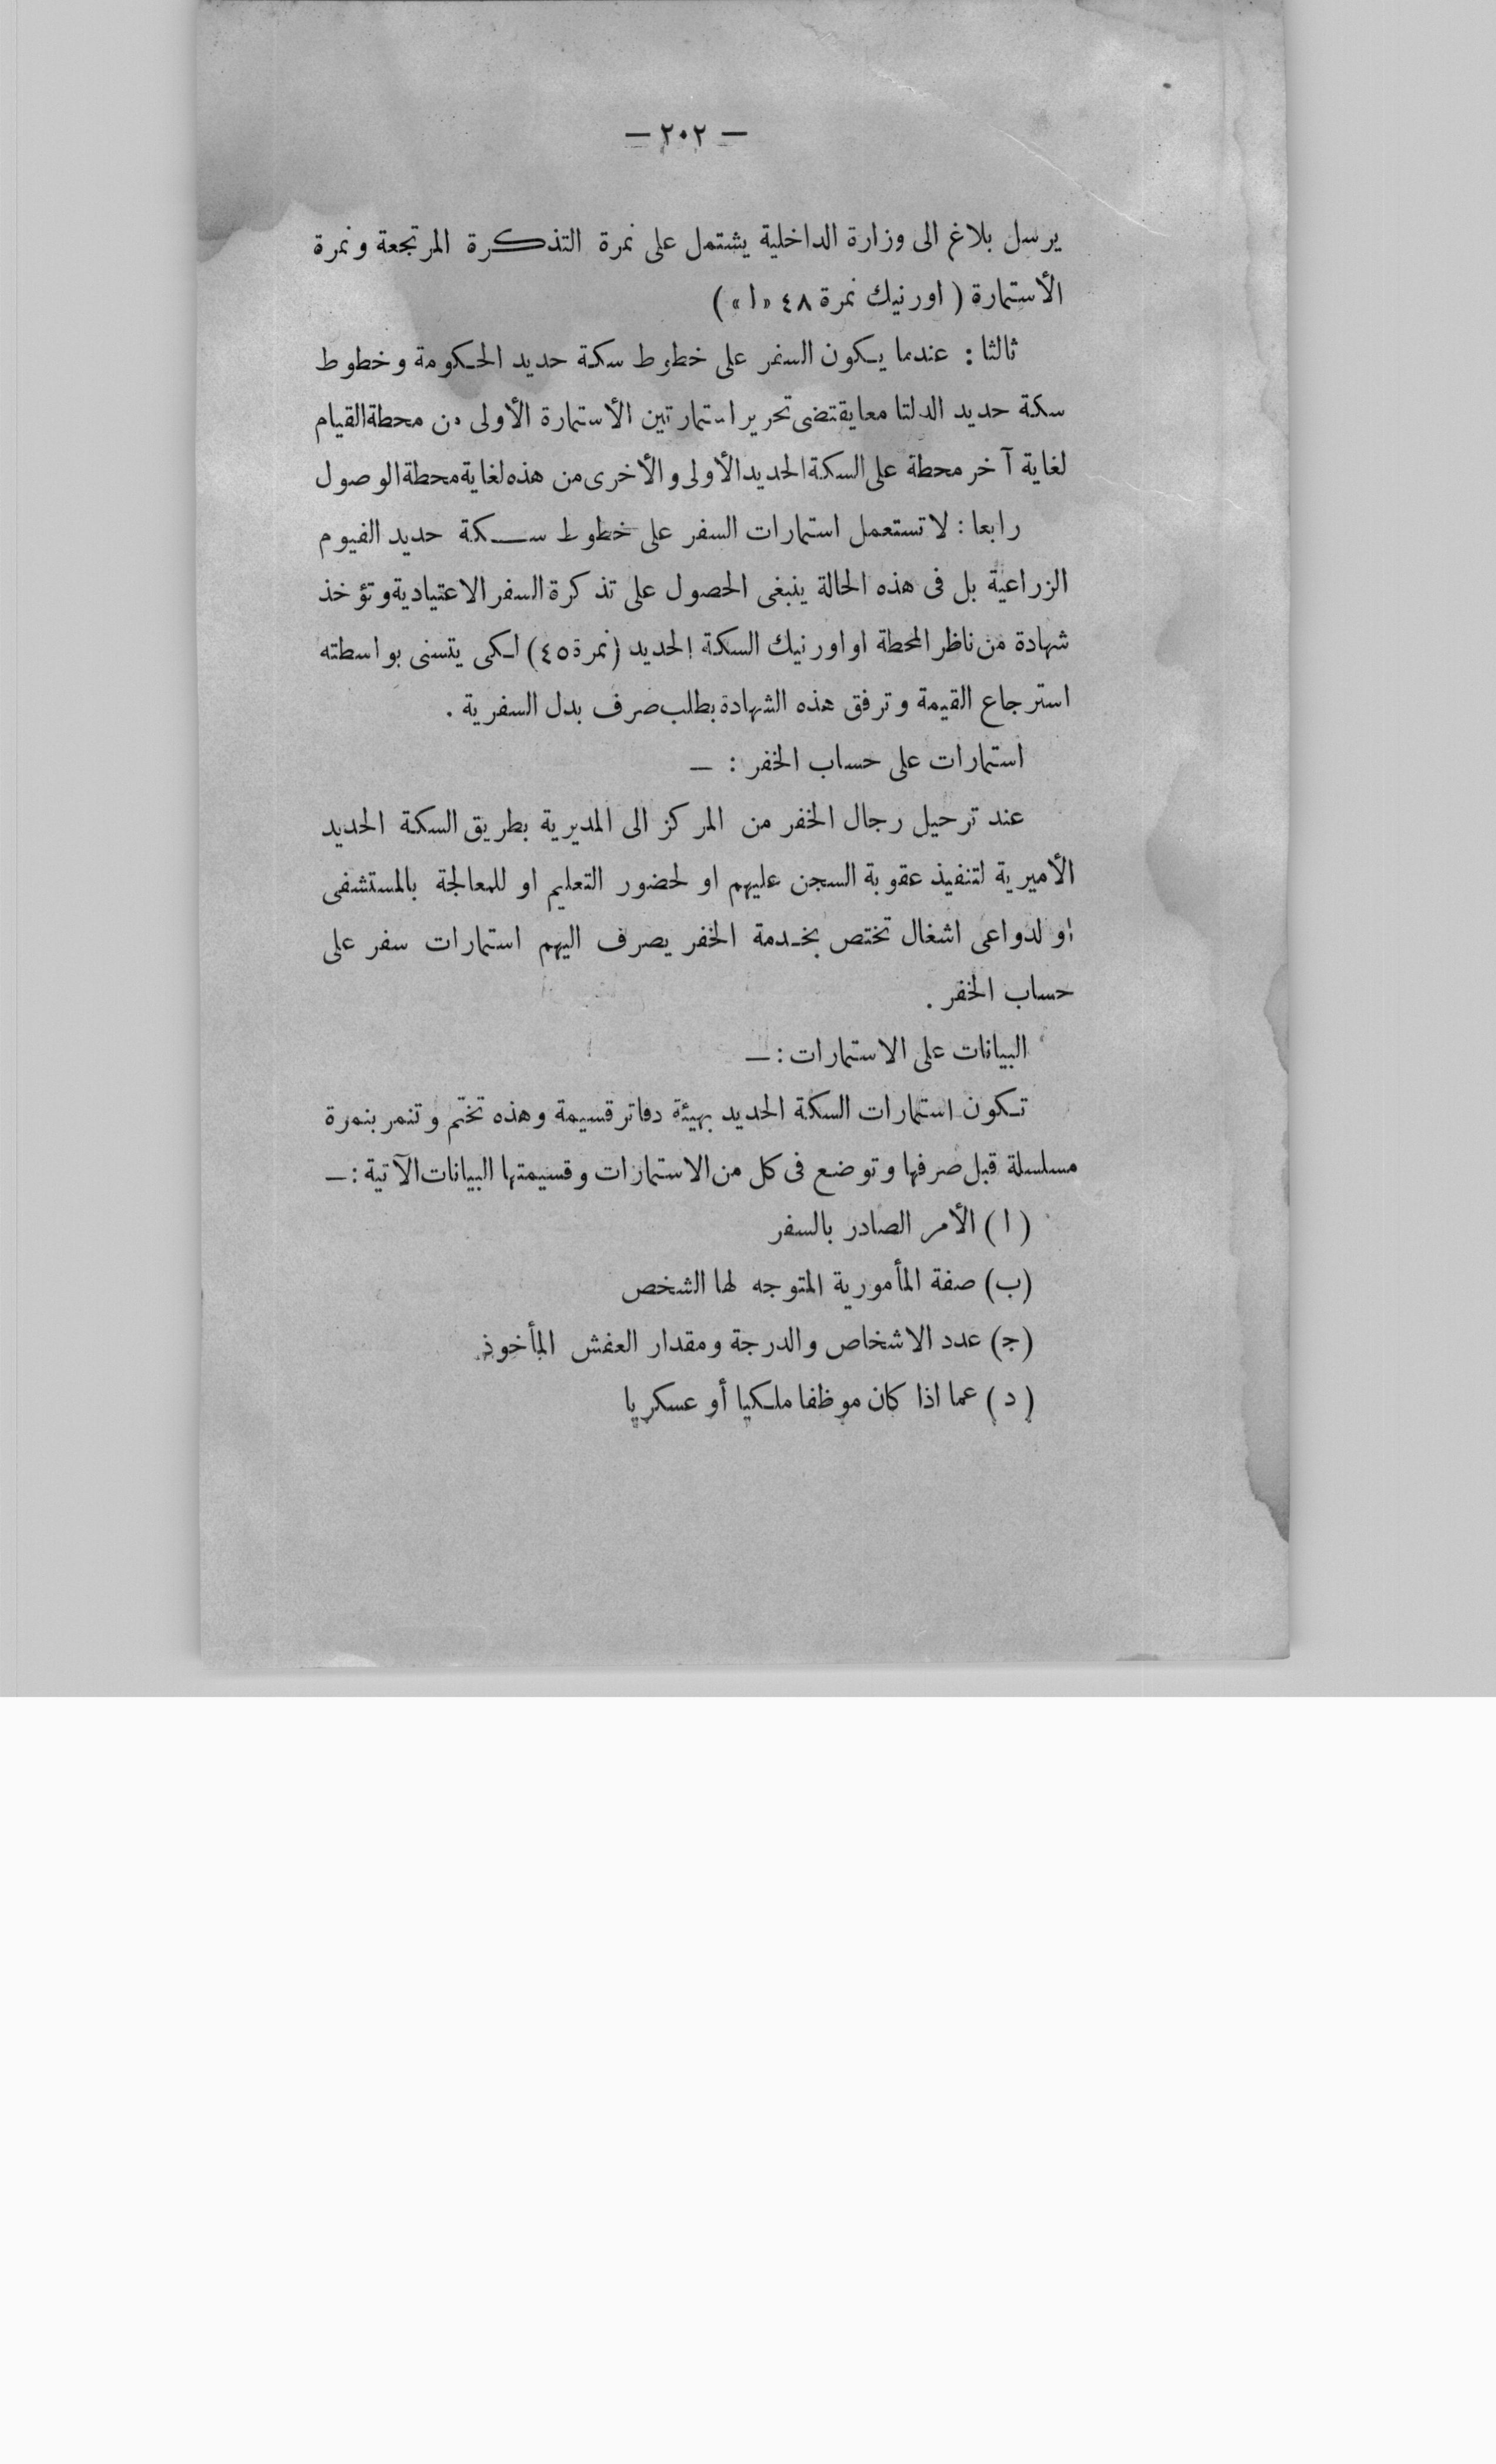 — ٢٠٢ —
يرسل بلاغ الى وزارة الداخلية يشتمل على نمرة التذكرة المرتجعة ونمرة
الأستمارة ( اورنيك نمرة ٤٨ «ا» )
ثالثا : عندما يكون السفر على خطوط سكة حديد الحكومة وخطوط
سكة حديد الدلتا معا يقتضى تحرير استمارتين الأستمارة الأولى من محطة القيام
لغاية آخر محطة على السكة الحديد الأولى والأخرى من هذه لغاية محطة الوصول
رابعا : لا تستعمل استمارات السفر على خطوط سكة حديد الفيوم
الزراعية بل فى هذه الحالة ينبغى الحصول على تذكرة السفر الاعتيادية وتؤخذ
شهادة من ناظر المحطة او اورنيك السكة الحديد (نمرة ٤٥) لكى يتسنى بواسطته
استرجاع القيمة وترفق هذه الشهادة بطلب صرف بدل السفرية .
استمارات على حساب الخفر : —
عند ترحيل رجال الخفر من المركز الى المديرية بطريق السكة الحديد
الأميرية لتنفيذ عقوبة السجن عليهم او لحضور التعليم او للمعالجة بالمستشفى
او لدواعى اشغال تختص بخدمة الخفر يصرف اليهم استمارات سفر على
حساب الخفر .
البيانات على الاستمارات : —
تكون استمارات السكة الحديد بهيئة دفاتر قسيمة وهذه تختم وتنمر بنمرة
مسلسلة قبل صرفها وتوضع فى كل من الاستمارات وقسيمتها البيانات الآتية : —
( ا ) الأمر الصادر بالسفر
(ب) صفة المأمورية المتوجه لها الشخص
(ج) عدد الاشخاص والدرجة ومقدار العفش المأخوذ
( د ) عما اذا كان موظفا ملكيا أو عسكريا